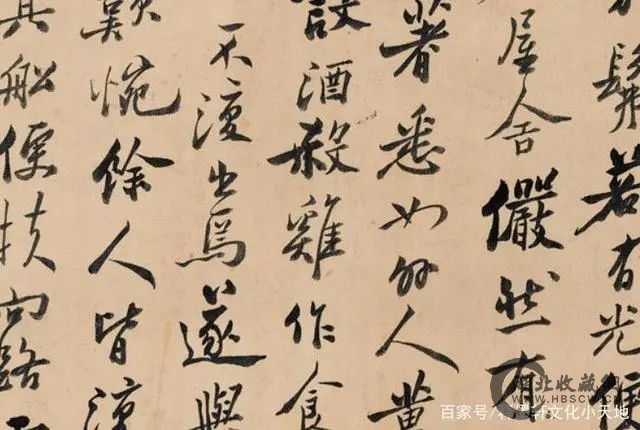 髴若有光便
屋舍儼然有
著悉如外人黄
設酒殺雞作食
不復出焉遂與
歎惋餘人皆
其船便扶向路
湖北收藏网
百家号/ 轩文化小天地